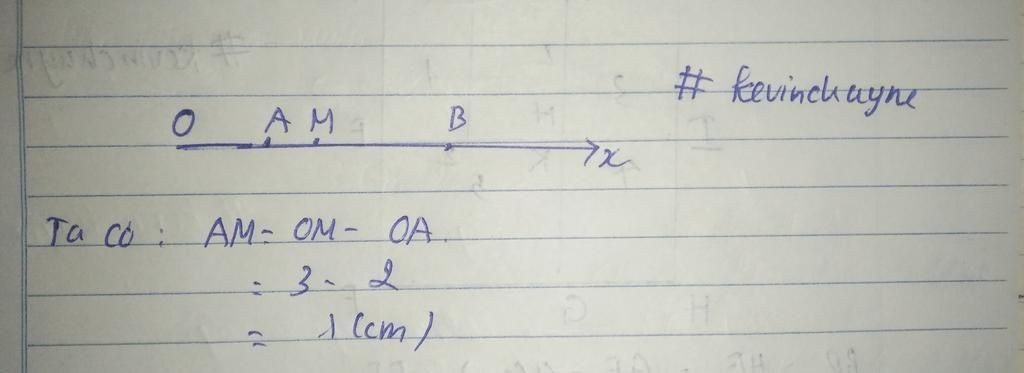 # kevinchayne
O A M B x
Ta có: AM = OM - OA.
= 3 - 2
= 1 (cm)